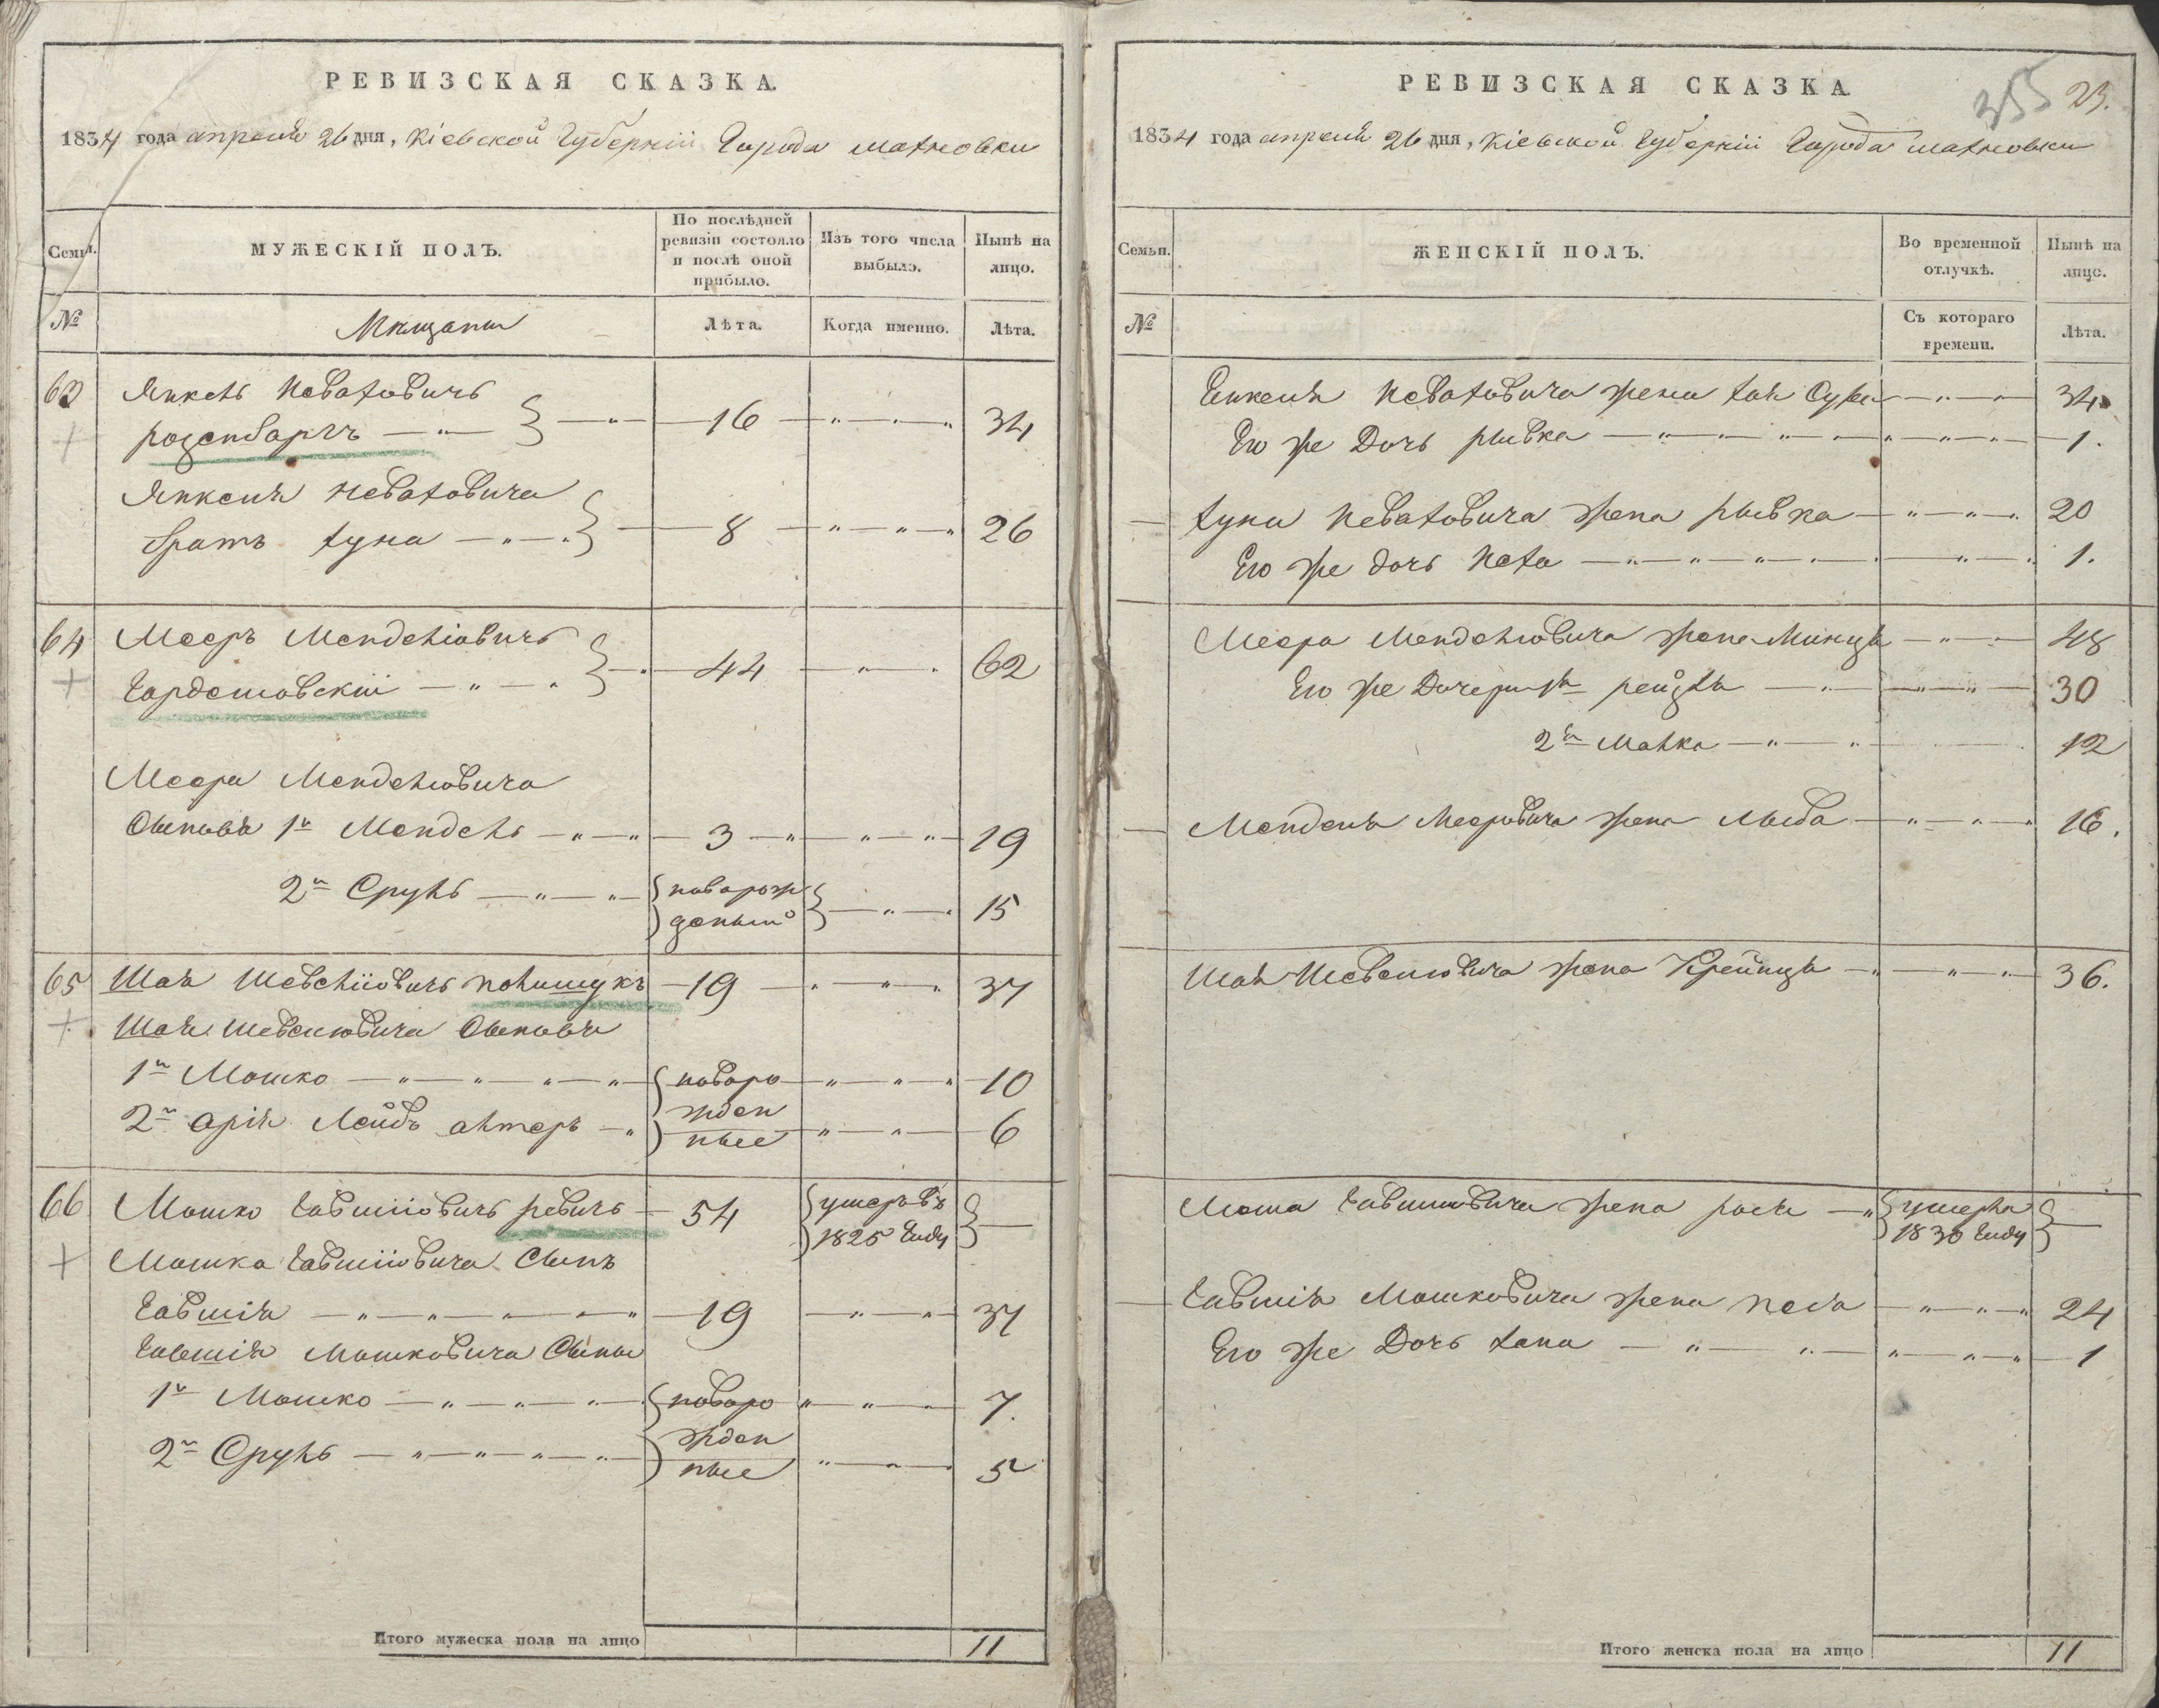 РЕВИЗСКАЯ СКАЗКА.
1834 года апреля 26 дня, Кіевской Губерніи Города Махновки
Семьи.
МУЖЕСКІЙ ПОЛЪ.
По послѣдней ревизіи состояло и послѣ оной прибыло.
Изъ того числа выбыло.
Нынѣ на лицо.
№
Мещане
Лѣта.
Когда именно.
Лѣта.
Янкель Неваховичъ
розенбаргъ — 16 — 34
Янкеля Неваховича
братъ хуна — 8 — 26
64 МееръМенделіовичъ
Гардешовскій — 44 — 62
Меера Менделіовича
Сыновья 1й Мендель — 3 — 19
2й Сруль — новорожденый — 15
65 Шая Шевеліовичъ полищукъ — 19 — 37
Шая Шевелювича Сыновья
1й Мошко — новоро — 10
2й арія Лейбъ алтеръ — жден ные — 6
66 Мошко Евшіовичъ ревичъ — 54 умеръ въ 1825 Году —
Мошка Евшіовича Сынъ
Евшія — 19 — 37
Евшія Мошковича Сыны
1й Мошко — новоро — 7.
2й Сруль — жден ные — 5
Итого мужеска пола на лицо 11
РЕВИЗСКАЯ СКАЗКА
355 23.
1834 года апреля 26 дня, Кіевской Губерніи Города Махновки
Семьи.
ЖЕНСКІЙ ПОЛЪ.
Во временной отлучкѣ.
Нынѣ на лице.
№
Съ котораго времени.
Лѣта.
Енкеля Неваховича жена хая Сура — 34
Его же Дочь рывка — 1.
хуни Неваховича жена рывка — 20
Его же дочь Неха — 1.
Меера Менделювича жена Минця — 48
Его же Дочери 1я рейзля — 30
2я Малка — 12
Менделя Мееровича жена лыба — 16.
Шая Шевелювича жена Крейнця — 36.
Моша Евшиовича жена рася — умерла 1830 Году —
Евшія Мошковича жена Неса — 24
Его же Дочь хана — 1
Итого женска пола на лицо 11